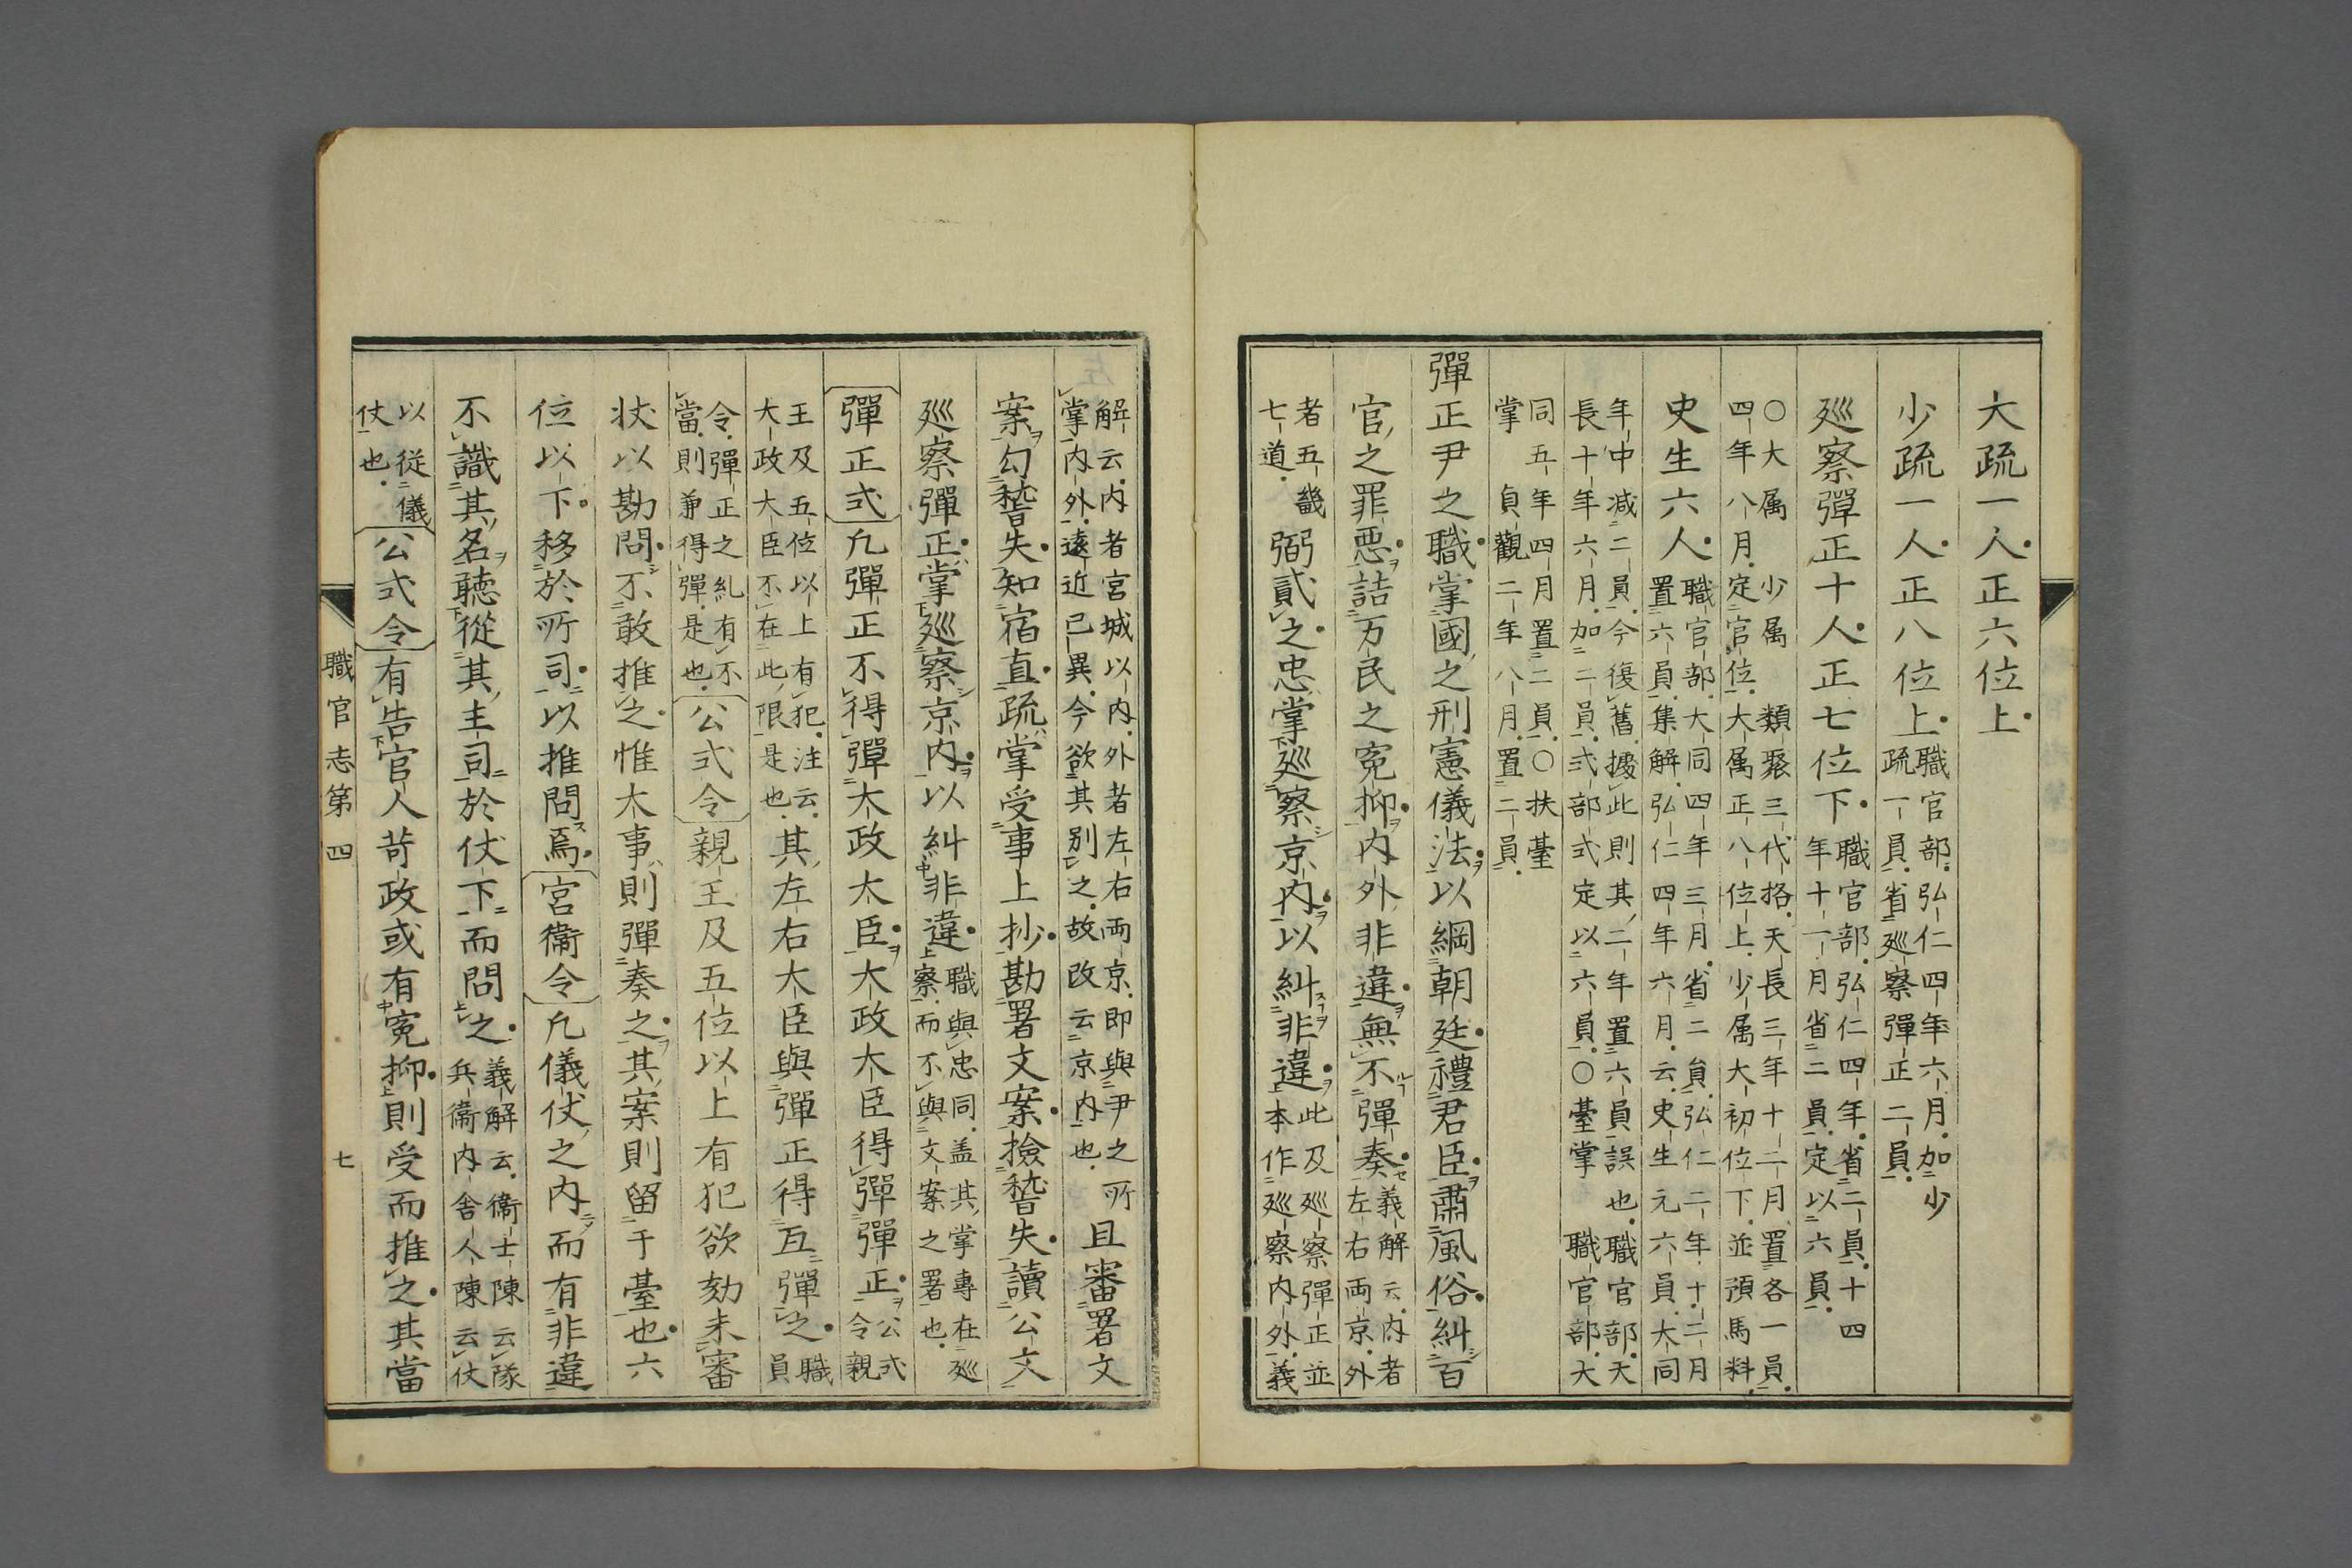 大疏一人正六位上
少疏一人正八位上職官部弘仁四年六月加少
疏一員省巡察彈正二員
巡察彈正十人正七位下職官部弘仁四年省二員十四
年十一月省二員定以六員
○大属少属類聚三代格天長三年十二月置各一員
四年八月定官位大属正八位上少属大初位下並預馬料
史生六人職官部大同四年三月省二員弘仁二年十二月
置六員集解弘仁四年六月云史生元六員大同
年中減二員今復舊據此則其二年置六員誤也職官部天
長十年六月加二員式部式定以六員○臺掌職官部大
同五年四月置二員○扶臺
掌貞觀二年八月置二員
彈正尹之職掌國之刑憲儀法以綱朝廷禮君臣肅風俗糾百
官之罪惡詰万民之寃抑内外非違無不彈奏義解云内者
左右兩京外
者五畿
七道弼貳之忠掌巡察京内以糾非違此及巡察彈正並
本作巡察内外義
解云内者宮城以内外者左右兩京即與尹之所
掌内外遠近已異今欲其別之故改云京内也且審署文
案勾稽失知宿直疏掌受事上抄勘署文案撿稽失讀公文
巡察彈正掌巡察京内以糾非違職與忠同盖其掌專在巡
察而不與文案之署也
彈正式凡彈正不得彈太政大臣太政大臣得彈彈正公式
令親
王及五位以上有犯注云
大政大臣不在此限是也其左右大臣與彈正得互彈之職
員
令彈正之糺有不
當則兼得彈是也公式令親王及五位以上有犯欲劾未審
状以勘問不敢推之惟大事則彈奏之其案則留于臺也六
位以下移於所司以推問焉宮衞令凡儀仗之内而有非違
不識其名聽從其主司於仗下而問之義解云衞士陳云隊
兵衞内舎人陳云仗
以從儀
仗也公式令有告官人苛政或有寃抑則受而推之其當
職官志第四
七